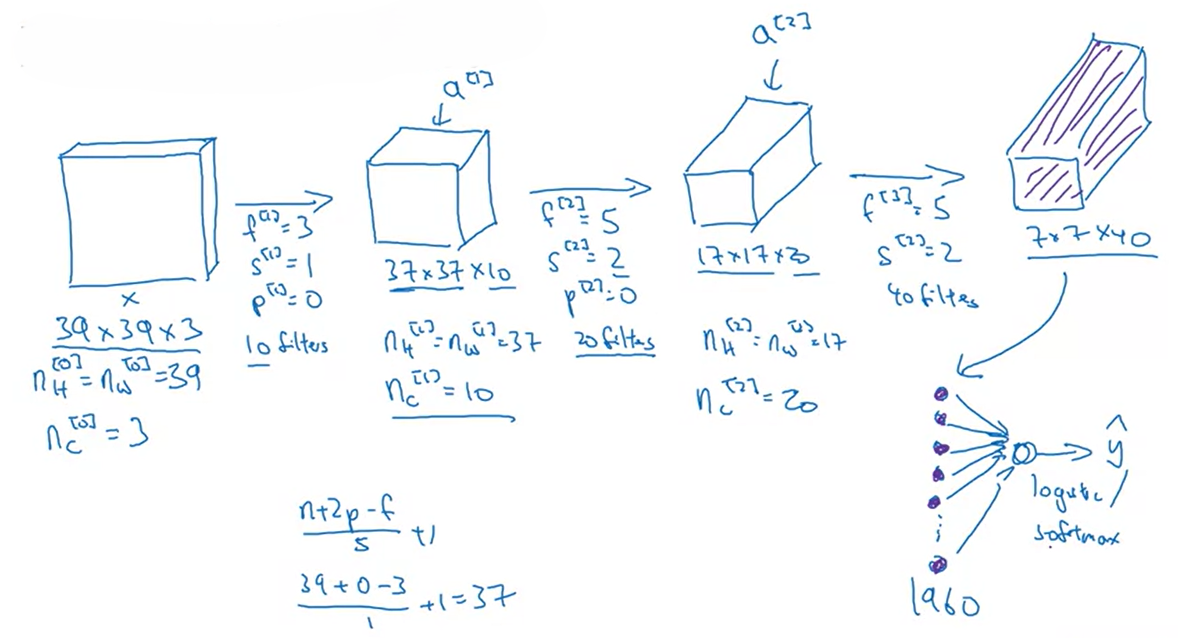 a^[1]
a^[2]
x
39×39×3
n_H^[0] = n_W^[0] = 39
n_C^[0] = 3
f^[1] = 3
s^[1] = 1
p^[1] = 0
10 filters
37×37×10
n_H^[1] = n_W^[1] = 37
n_C^[1] = 10
f^[2] = 5
s^[2] = 2
p^[2] = 0
20 filters
17×17×20
n_H^[2] = n_W^[2] = 17
n_C^[2] = 20
f^[3] = 5
s^[2] = 2
40 filters
7×7×40
ŷ
logistic /
softmax
1960
(n+2p-f)/s +1
(39+0-3)/1 +1 = 37